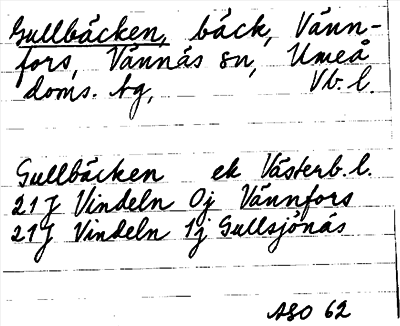 Gullbäcken, bäck, Vänn-
fors, Vännäs sn, Umeå
doms. tg, Vb. l.
Gullbäcken ek Västerb. l.
21J Vindeln 0j Vännfors
21J Vindeln 1j Gullsjönäs
ASO 62